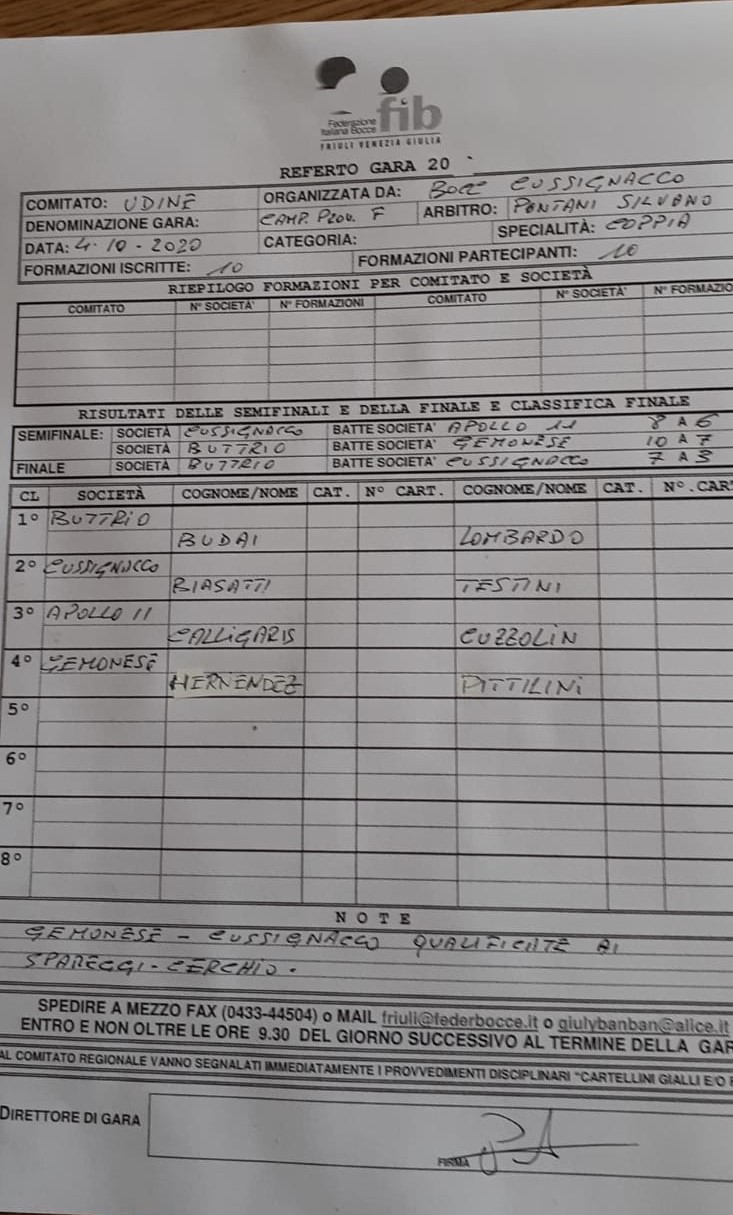 Federazione
Italiana Bocce
fib
FRIULI VENEZIA GIULIA
REFERTO GARA 20
COMITATO: UDINE ORGANIZZATA DA: BOCC CUSSIGNACCO
DENOMINAZIONE GARA: CAMP. PROV. F ARBITRO: PONTANI SILVANO
DATA: 4-10-2020 CATEGORIA: SPECIALITÀ: COPPIA
FORMAZIONI ISCRITTE: 10 FORMAZIONI PARTECIPANTI: 10
RIEPILOGO FORMAZIONI PER COMITATO E SOCIETÀ
COMITATO N° SOCIETA' N° FORMAZIONI COMITATO N° SOCIETA' N° FORMAZIO
RISULTATI DELLE SEMIFINALI E DELLA FINALE E CLASSIFICA FINALE
SEMIFINALE: SOCIETÀ CUSSIGNACCO BATTE SOCIETA' APOLLO 11 8 A 6
SOCIETÀ BUTTRIO BATTE SOCIETA' GEMONESE 10 A 7
FINALE SOCIETÀ BUTTRIO BATTE SOCIETA' CUSSIGNACCO 7 A 3
CL SOCIETÀ COGNOME/NOME CAT. N° CART. COGNOME/NOME CAT. N°.CART
1° BUTTRIO
BUDAI LOMBARDO
2° CUSSIGNACCO
BIASATTI TESTINI
3° APOLLO 11
CALLIGARIS CUZZOLIN
4° GEMONESE
HERNENDEZ PITTILINI
5°
6°
7°
8°
NOTE
GEMONESE - CUSSIGNACCO QUALIFICATE AI
SPAREGGI-CERCHIO.
SPEDIRE A MEZZO FAX (0433-44504) o MAIL friuli@federbocce.it o giulybanban@alice.it
ENTRO E NON OLTRE LE ORE 9.30 DEL GIORNO SUCCESSIVO AL TERMINE DELLA GAR
AL COMITATO REGIONALE VANNO SEGNALATI IMMEDIATAMENTE I PROVVEDIMENTI DISCIPLINARI "CARTELLINI GIALLI E/O
DIRETTORE DI GARA
FIRMA